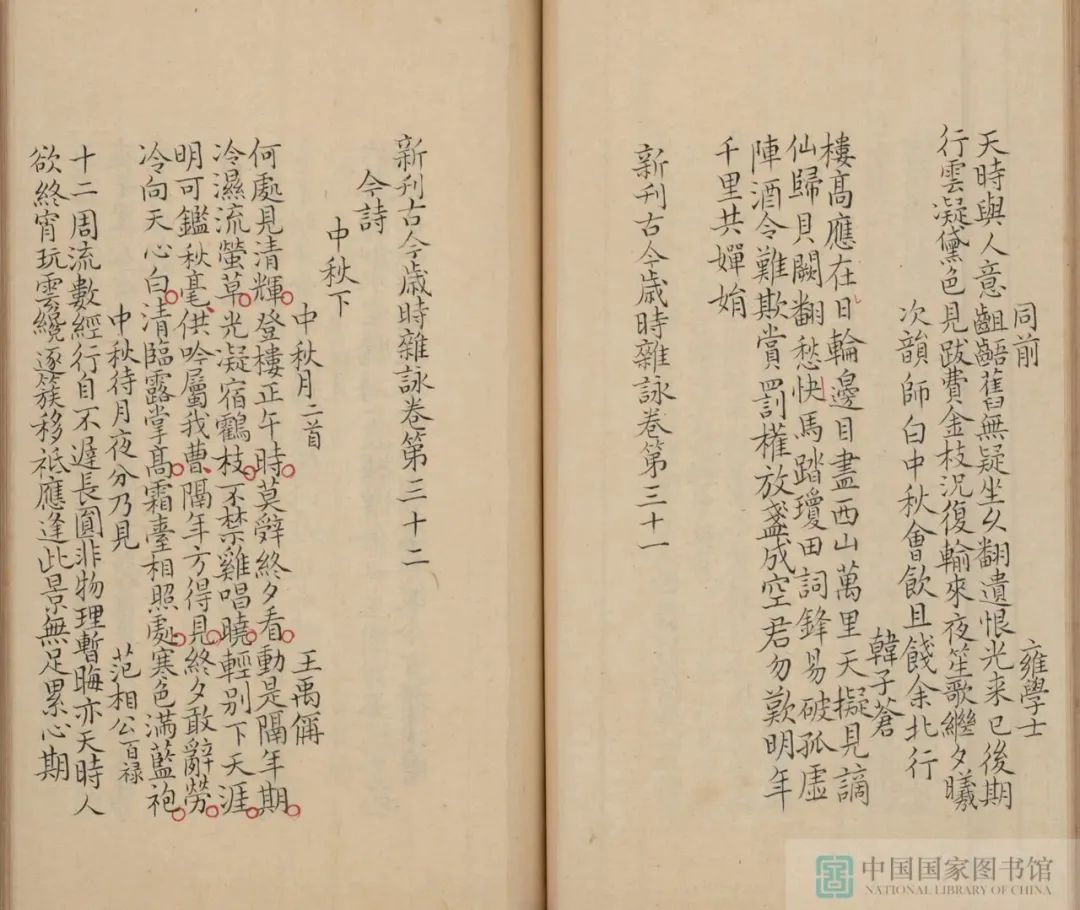 同前 雍學士
天時與人意齟齬舊無疑坐久翻遺恨光来已後期
行雲凝黛色見跋費金枝況復輸來夜笙歌繼夕曦
次韻師白中秋會飲且餞余北行
韓子蒼
樓高應在日輪邊目盡西山萬里天擬見謫
仙歸貝闕翻愁快馬踏瓊田詞鋒易破孤虛
陣酒令難欺賞罰權放盞成空君勿歎明年
千里共嬋娟
新刊古今歲時雜詠卷第三十一
新刊古今歲時雜詠卷第三十二
今詩
中秋下
中秋月二首 王禹偁
何處見清輝登樓正午時莫辤終夕看動是隔年期
冷濕流螢草光凝宿鸛枝不禁雞唱曉輕别下天涯
明可鑑秋毫供吟屬我曹隔年方得見終夕敢辭勞
冷向天心白清臨露掌高霜臺相照處寒色滿藍袍
中秋待月夜分乃見 范相公百禄
十二周流數經行自不遲長圓非物理暫晦亦天時人
欲終宵玩雲纔逐簇移祗應逢此景無足累心期
中国国家图书馆
NATIONAL LIBRARY OF CHINA